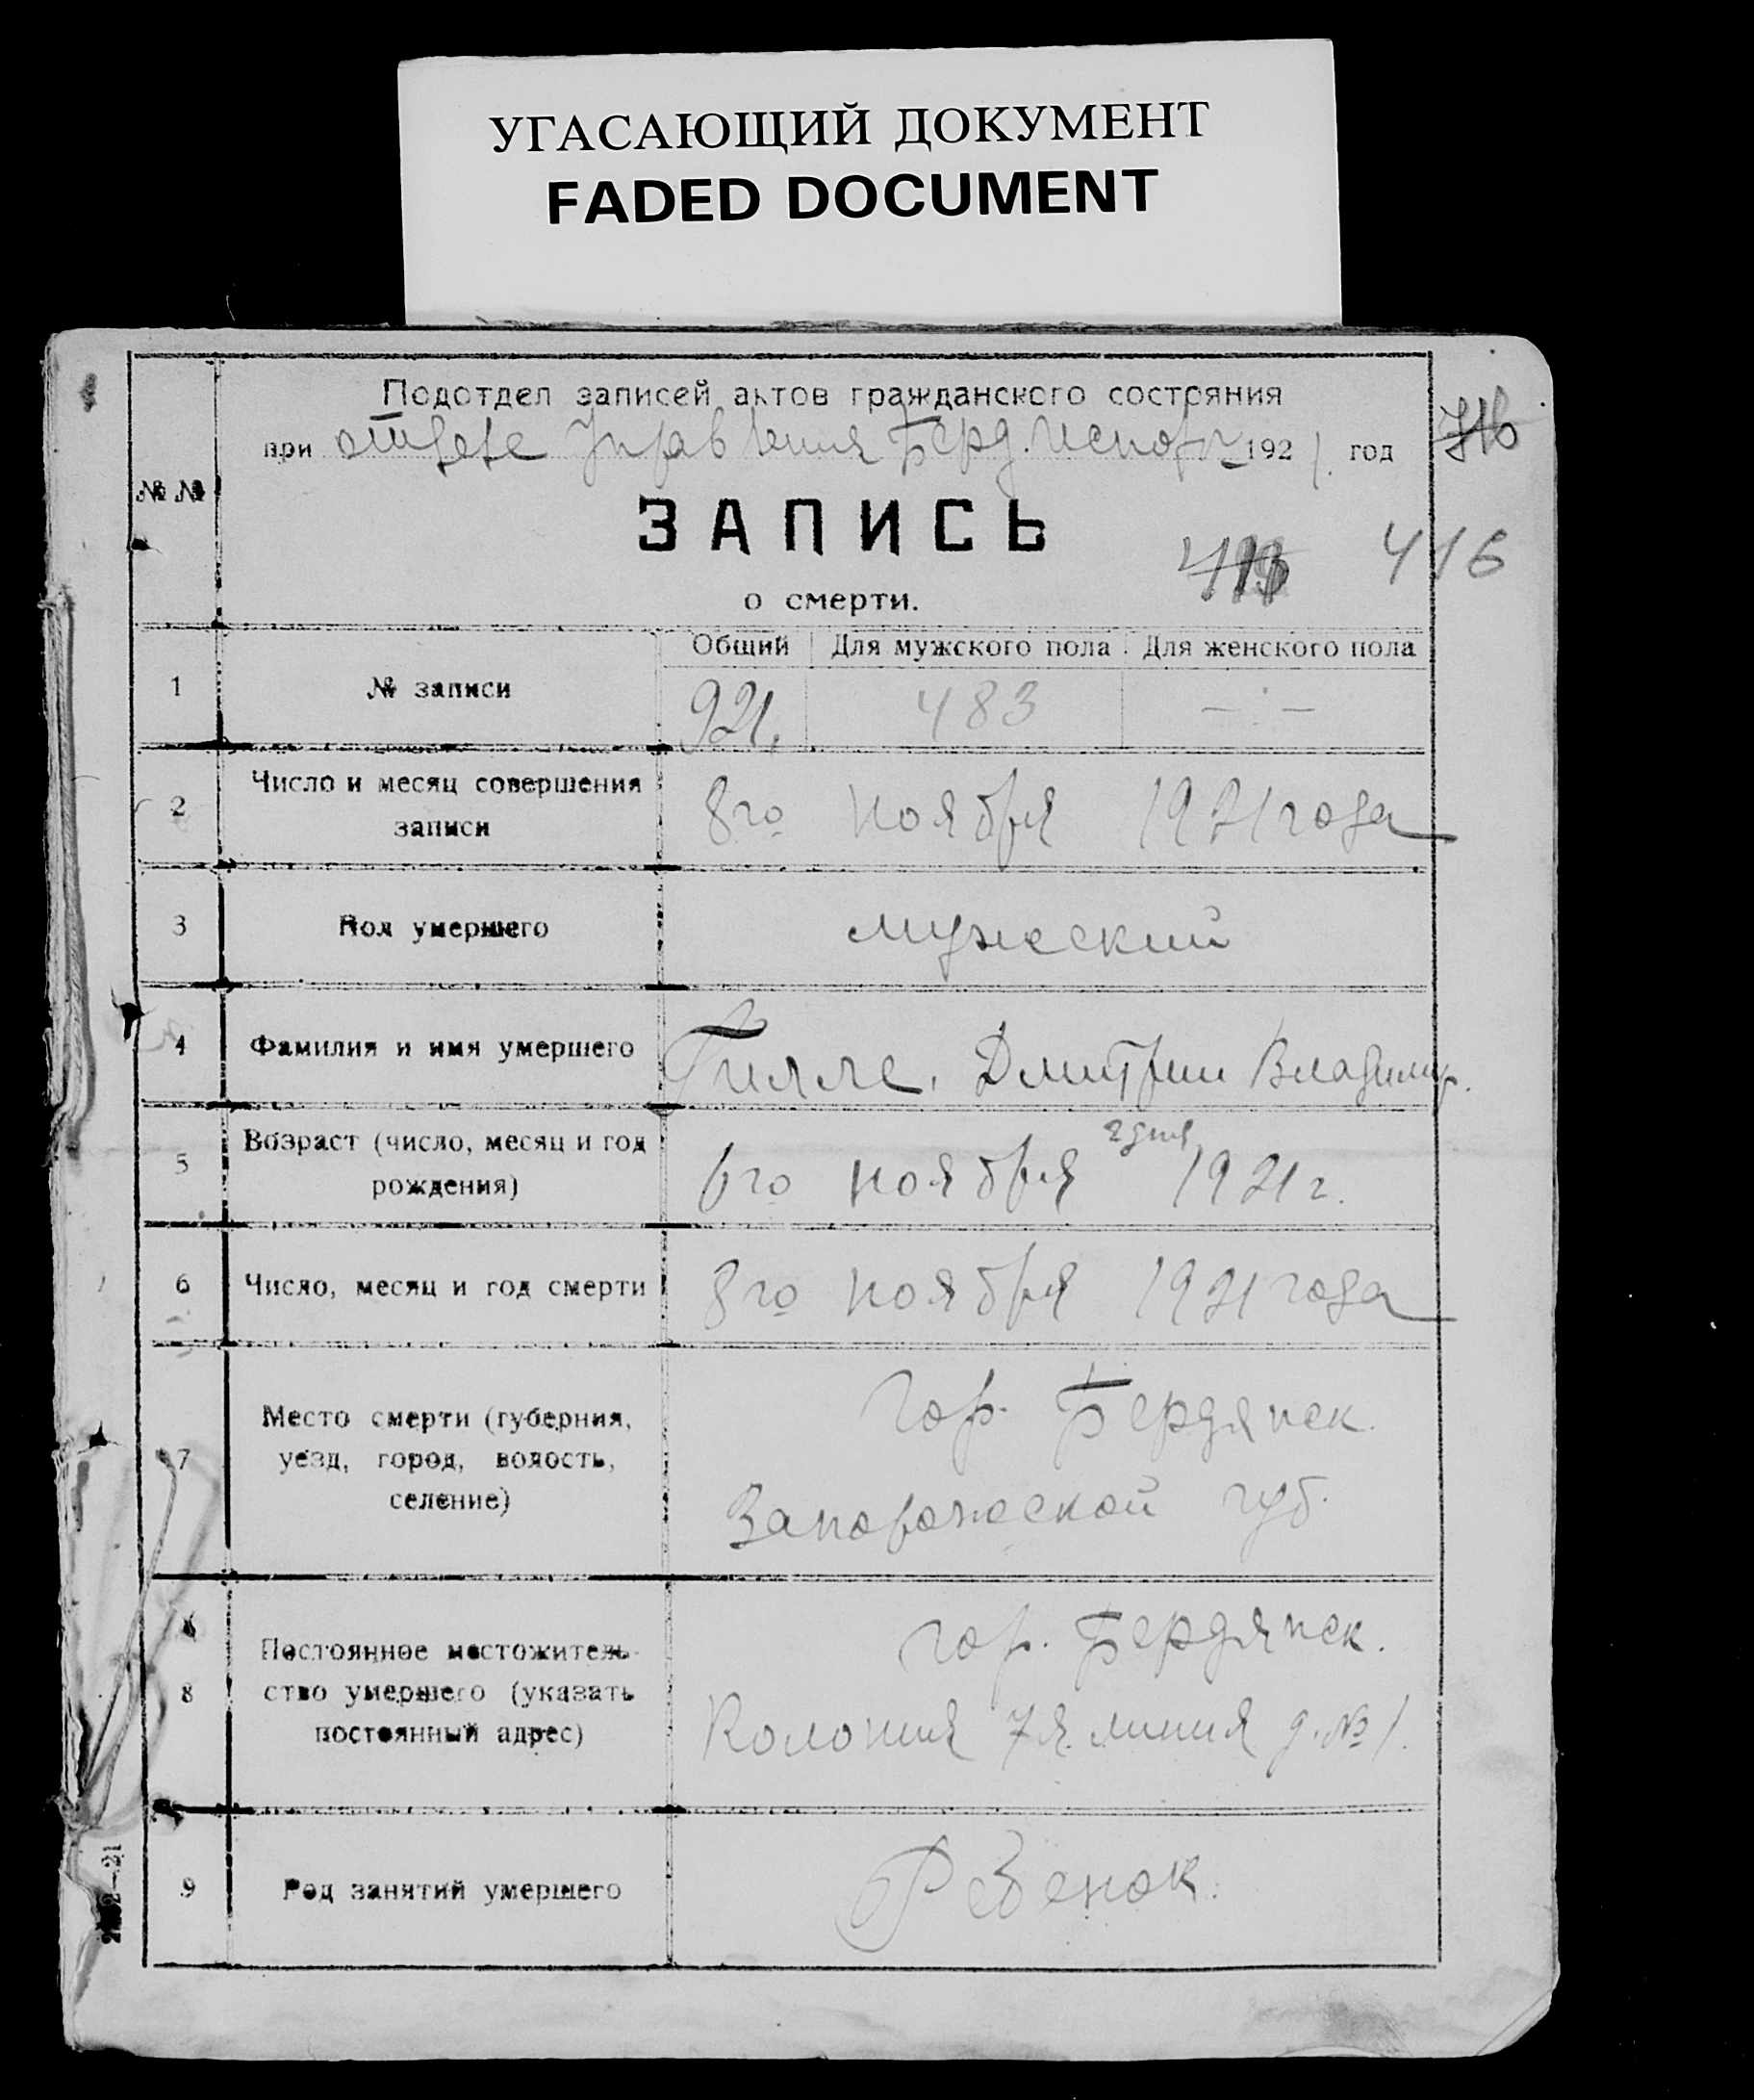 УГАСАЮЩИЙ ДОКУМЕНТ
FADED DOCUMENT
Подотдел записей актов гражданского состояния
при отделе Управления Берд. Исполк. 1921 год
№ №
ЗАПИСЬ
416
о смерти.
Общий Для мужского пола Для женского пола
1 № записи 921. 483 — · —
2 Число и месяц совершения
записи
8го ноября 1921 года
3 Пол умершего мужеский
4 Фамилия и имя умершего Гилле, Дмитрий Владимир.
5 Возраст (число, месяц и год
рождения)
2 дня
6го ноября 1921 г.
6 Число, месяц и год смерти 8го ноября 1921 года
7 Место смерти (губерния,
уезд, город, волость,
селение)
Гор. Бердянск.
Запорожской губ.
8 Постоянное местожитель-
ство умершего (указать
постоянный адрес)
гор. Бердянск.
Колония 7я линия д. № 1.
9 Род занятий умершего Ребенок.